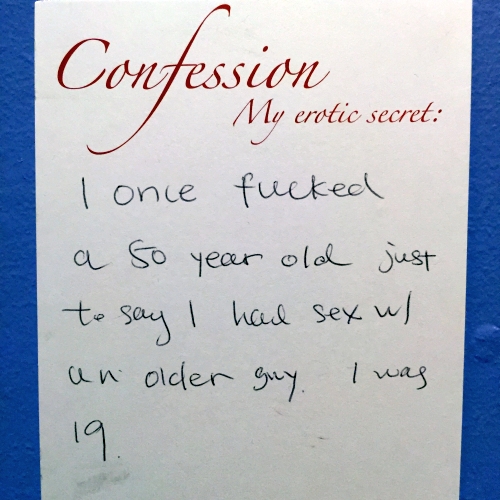 Confession
My erotic secret:
I once fucked
a 50 year old just
to say I had sex w/
an older guy. I was
19.